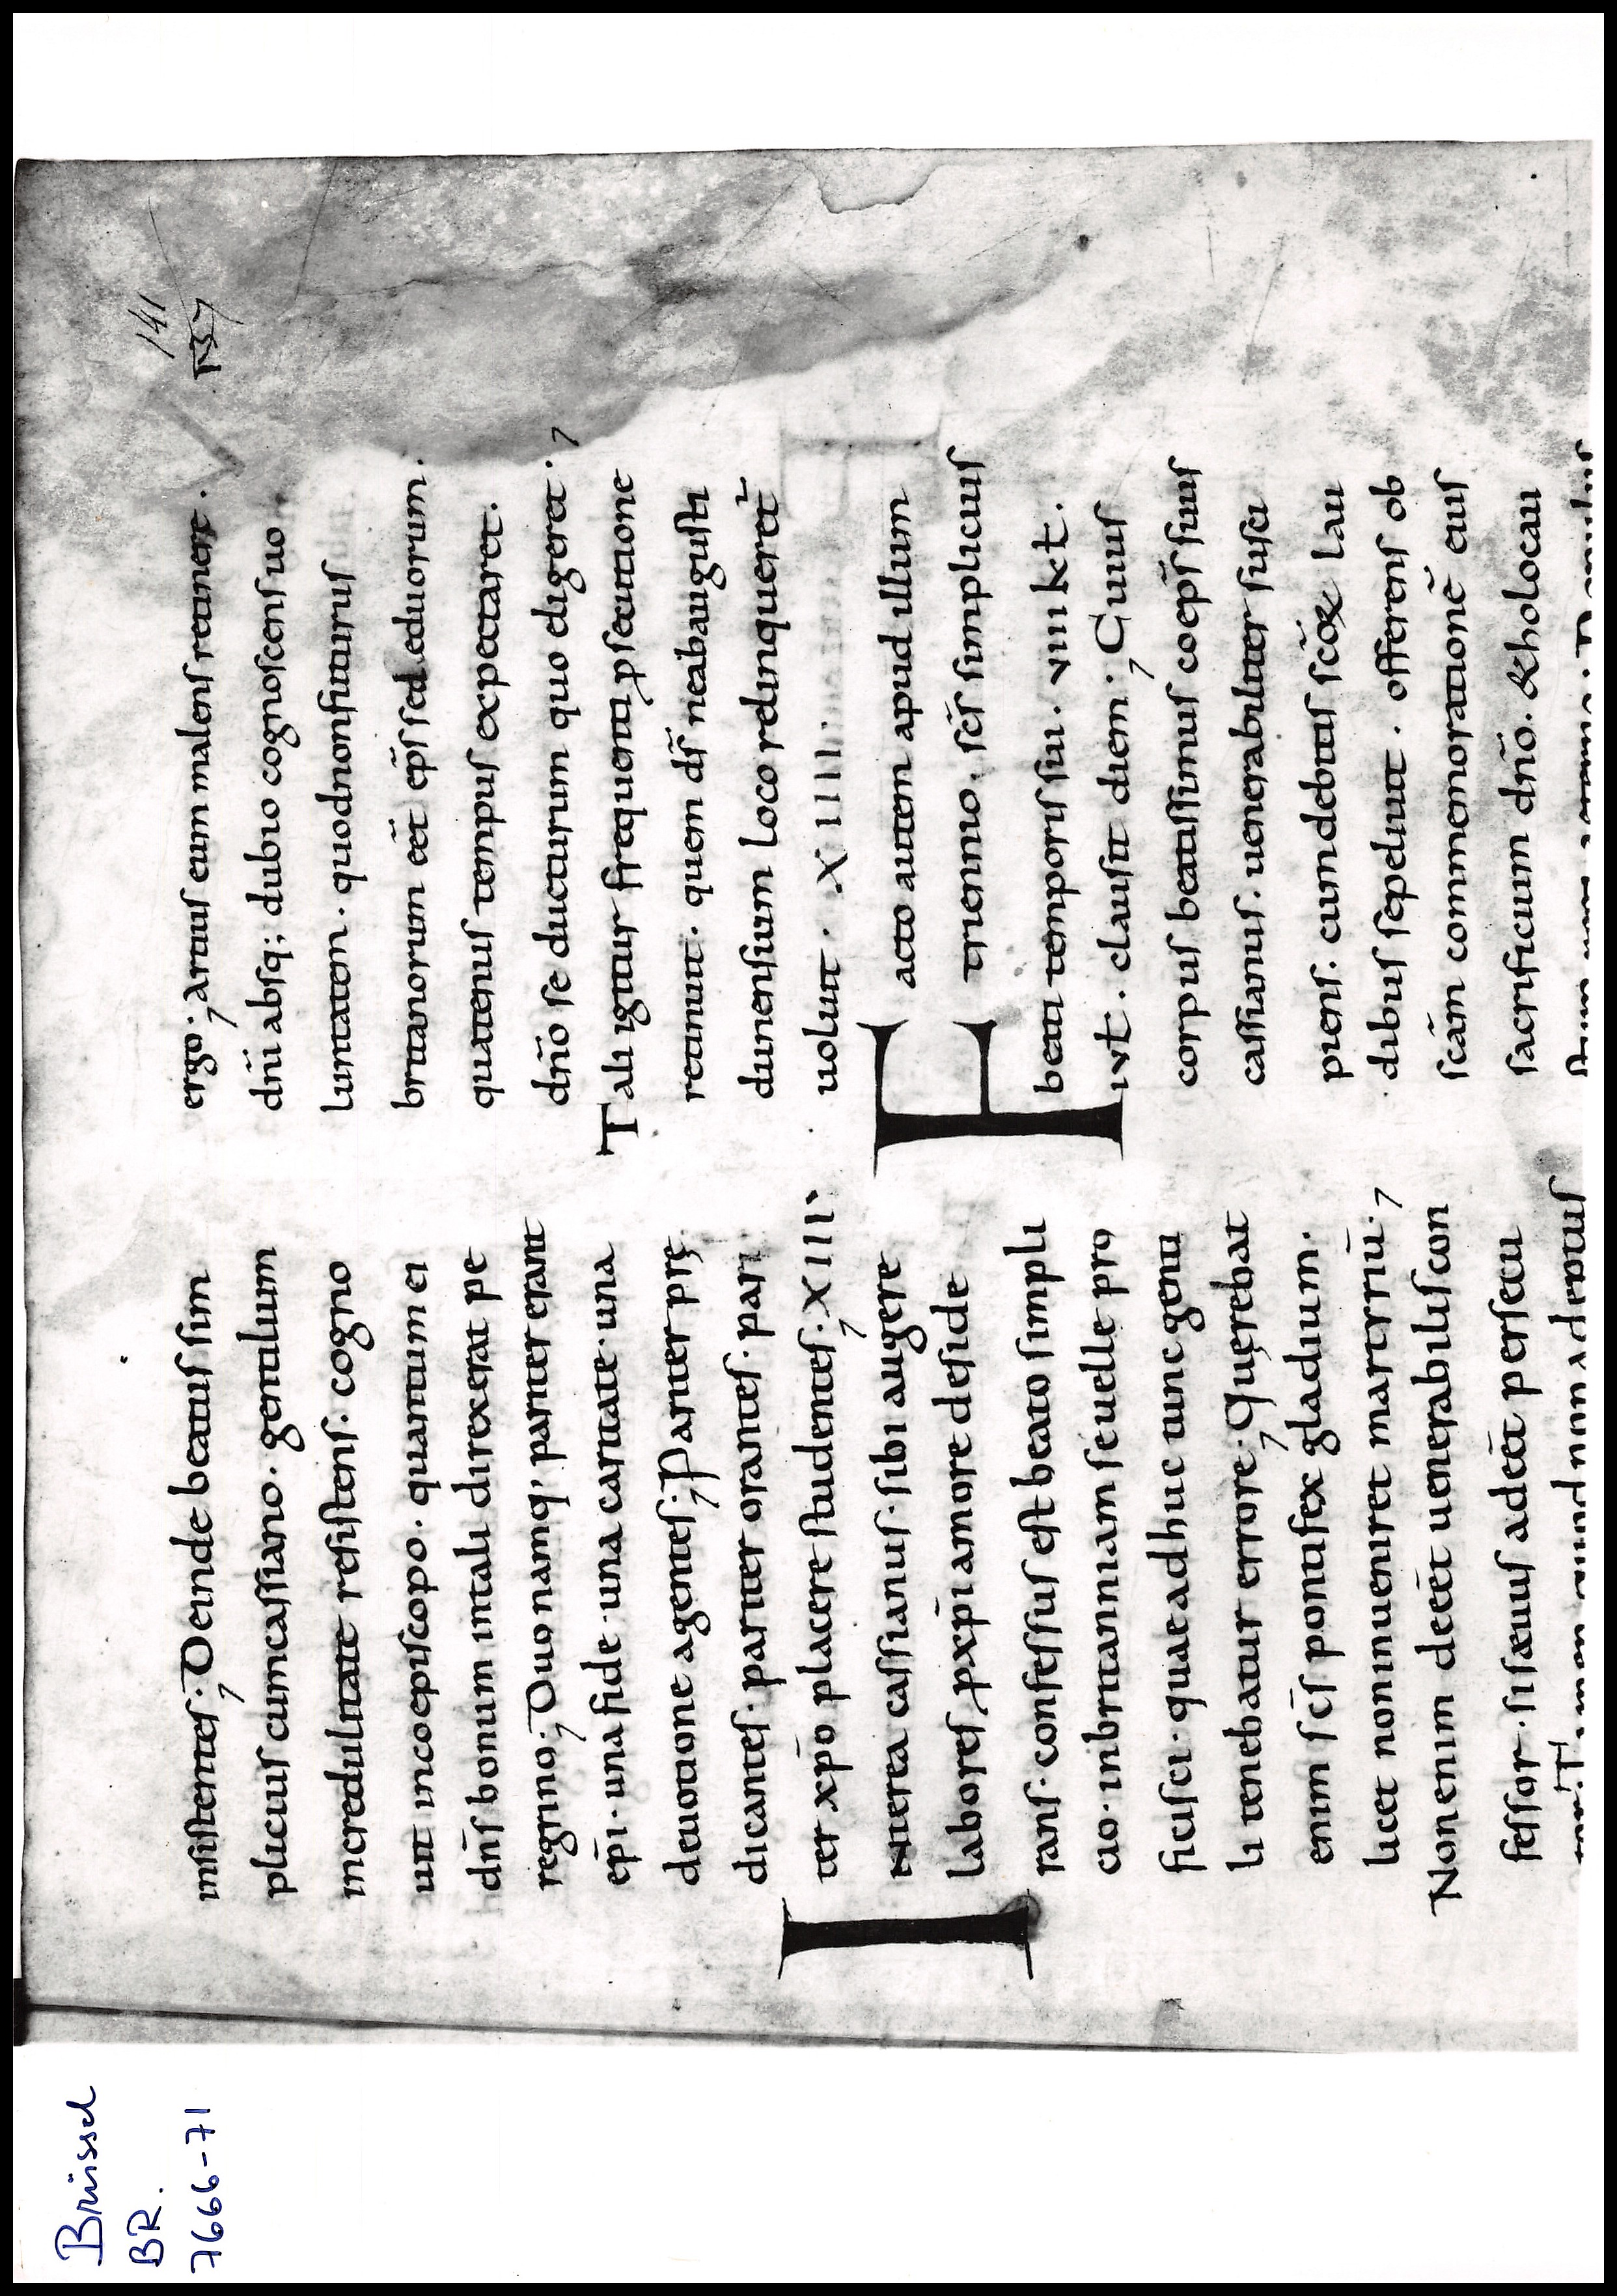 Brüssel
BR.
7666-71
141
137
insistentes·, Deinde beatus sim
plicius cum cassiano. gentilium
incredulitate resistens. cogno
uit in coepiscopo. quantum ei
dn̄s bonum in tali direxerat pe
regrino·, Duo namq; pariter erant
ep̄i. una fide. una caritate. una
deuotione agentes·, Pariter prę
dicantes. pariter orantes. pari
ter xp̄o placere studentes·, XIII.
Interea cassianus. sibi augere
labores, p xp̄i amore deside
rans. confessus est beato simpli
cio. in brittanniam se uelle pro
ficisci. quae adhuc tunc genti
li tenebatur errore·, Quęrebat
enim sc̄s pontifex gladium.
licet non inueniret martiriū·,
Non enim deēēt uenerabilis con
fessor. si sæuus adeēt persecu
ergo·, Artius eum malens retinere.
dn̄i absq; dubio cognoscens uo
luntatem. quod non futurus
brittanorum eēt ep̄s sed eduorum.
quatenus tempus expectaret.
dn̄o se ducturum quo eligeret·,
Tali igitur frequenti psecutione
retinuit. quem dš ne ab augusti
dunensium loco relinqueret̄
uoluit. XIIII.
Facto autem apud illum
triennio. sc̄s simplicius
beati temporis sui. VIII kƚ.
iuƚ. clausit diem·, Cuius
corpus beatissimus coep̄s suus
cassianus. uenerabiliter susci
piens. cum debitis sc̄oꝝ lau
dibus sepeliuit. offerens ob
sc̄am commemorationē eius
sacrificium dn̄o. & holocau